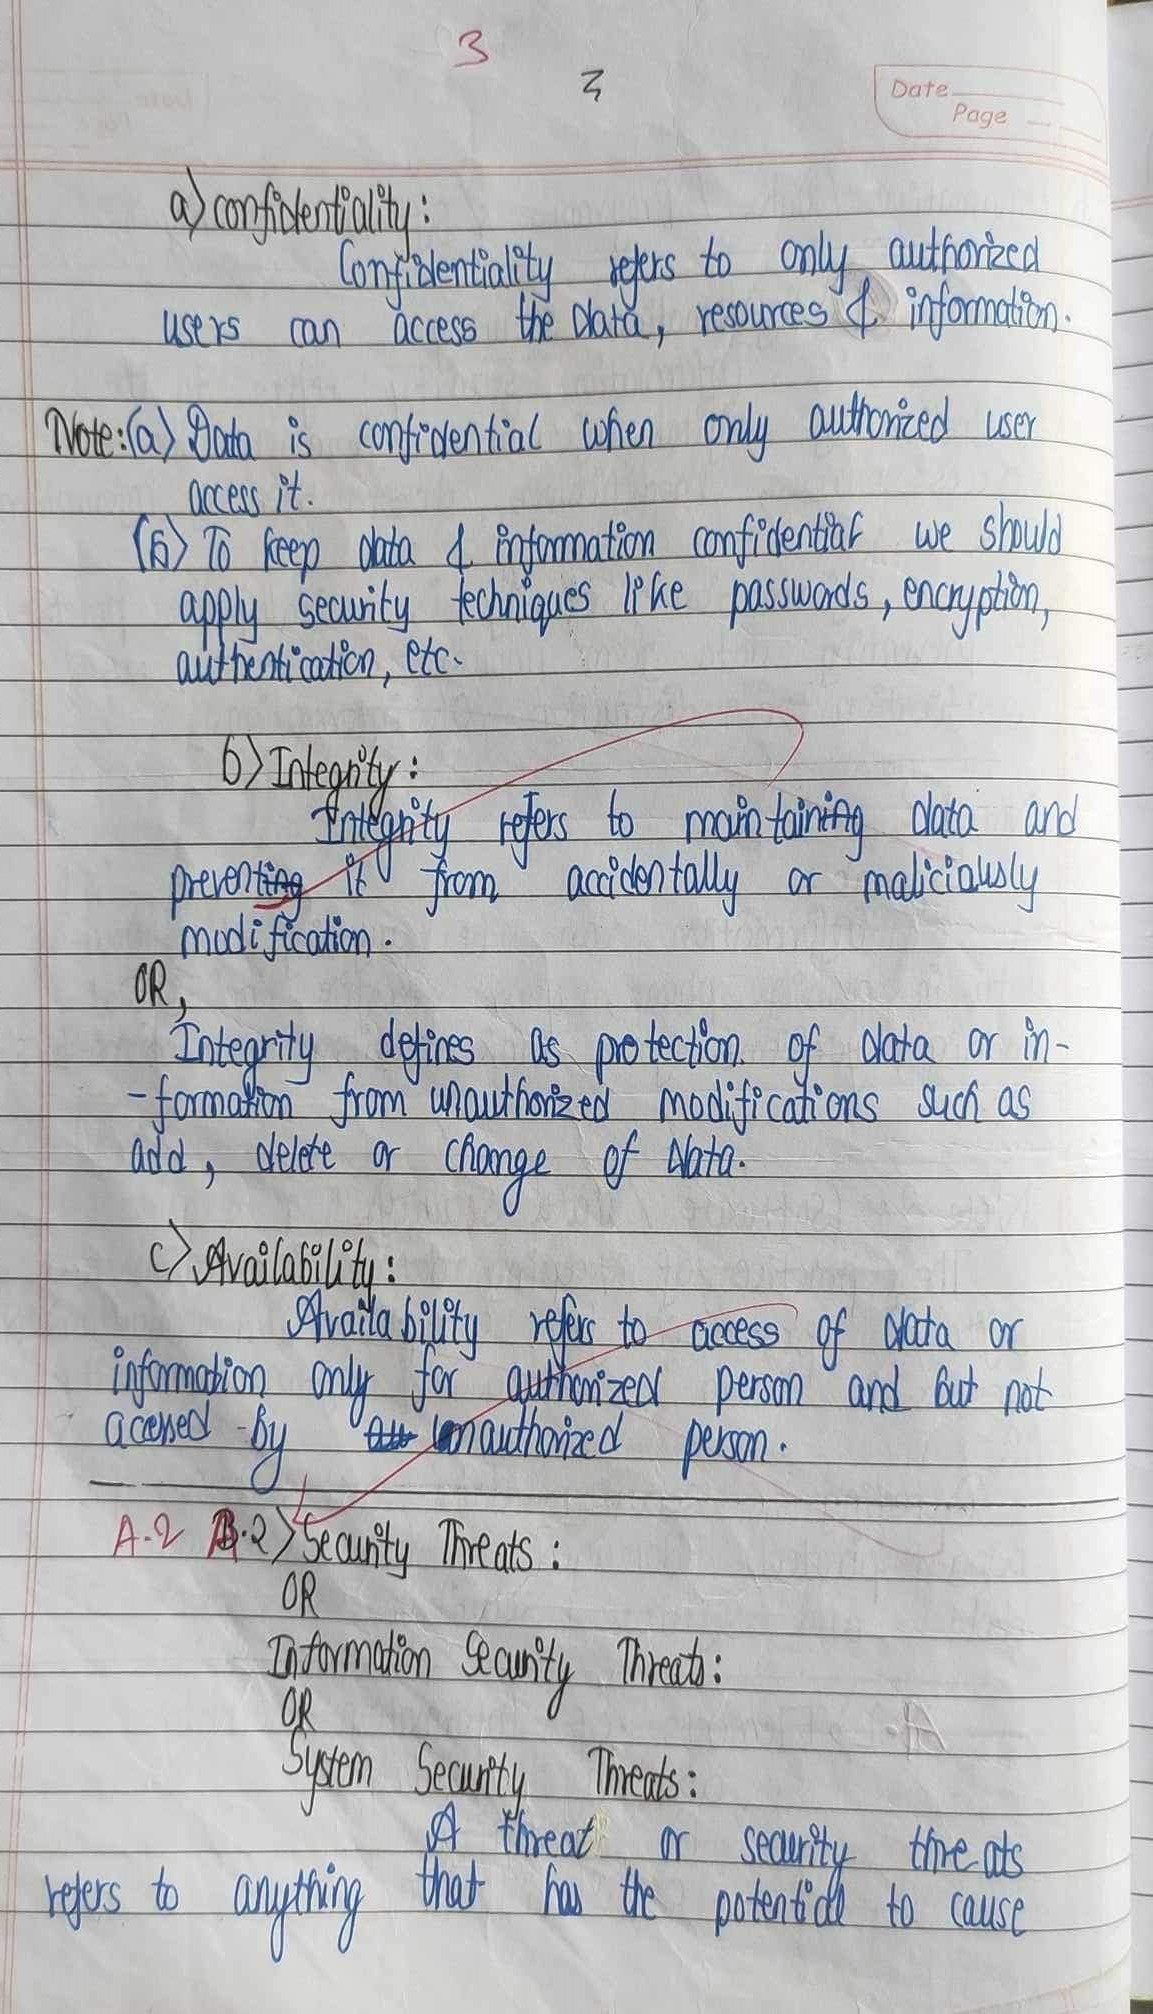 3
3
Date
Page
a) confidentiality:
Confidentiality refers to only authorized
users can access the data, resources & information.
Note: (a) Data is confidential when only authorized user
access it.
(b) To keep data & information confidential we should
apply security techniques like passwords, encryption,
authentication, etc.
b) Integrity:
Integrity refers to maintaining data and
preventing it from accidentally or maliciously
modification.
OR,
Integrity defines as protection of data or in-
-formation from unauthorized modifications such as
add, delete or change of data.
c) Availability:
Availability refers to access of data or
information only for authorized person and but not
accessed by unauthorized person.
A.2 B.2) Security Threats:
OR
Information Security Threats:
OR
System Security Threats:
A threat or security threats
refers to anything that has the potential to cause